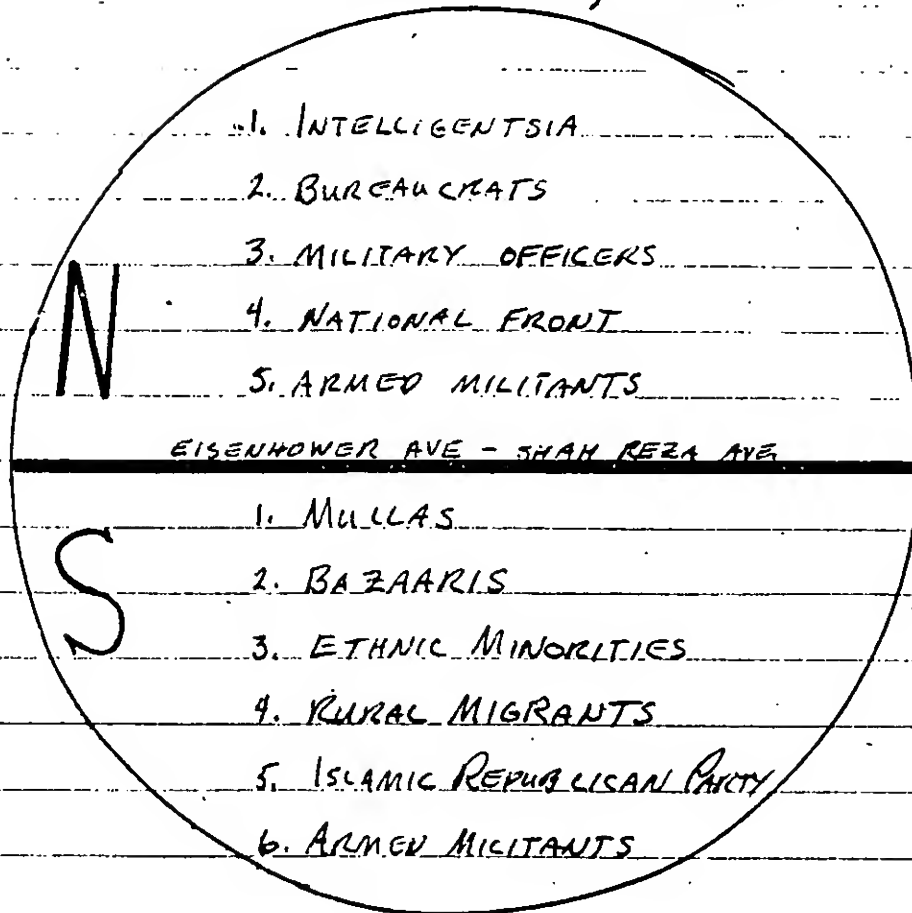 1. INTELLIGENTSIA
2. BUREAUCRATS
3. MILITARY OFFICERS
4. NATIONAL FRONT
5. ARMED MILITANTS
N
EISENHOWER AVE - SHAH REZA AVE
1. MULLAS
2. BAZAARIS
3. ETHNIC MINORITIES
4. RURAL MIGRANTS
5. ISLAMIC REPUBLICAN PARTY
6. ARMED MILITANTS
S